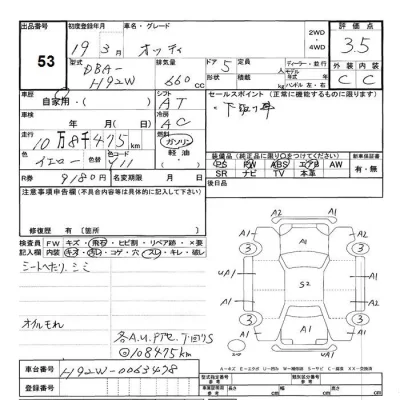 出品番号
53
初度登録年月
19年3月
車名・グレード
オッティ
2WD
・4WD
評価点
3.5
型式
DBA-
H92W
排気量
660cc
ドア
5
形状
ディーラー・並行
モデル年式
ハンドル 左・右
外装 内装
C C
車歴
自家用・( )
シフト
AT
セールスポイント(正常に機能するものに限ります)
下取り車
車検
年 月
冷房
AC
走行
10万8千475km
燃料
ガソリン
軽油・
色
イエロー
色替
R券
9180円
名変期限 月 日
装備品(純正品に限り○をつけてください)
PS PW ABS エアB AW
SR ナビ TV 本革
新車保証書
有・無
後日品
注意事項申告欄(不具合内容等は具体的に記入して下さい)
修復歴 有( )箇所
検査員記入欄
FW キズ・飛石・ヒビ割・リペア跡・×要
内装 キズ・汚レ・コゲ・穴・スレ・キレ・破レ
シートへたり、シミ
オイルモれ
@108475km
A2 A1
3 A1 3
UA1 S2 A1
3 A1 3
A1
車台番号
H92W-0063498
登録番号
自動車重量等 参考
類別区分番号 参考
長さ cm 幅 cm 高さ cm